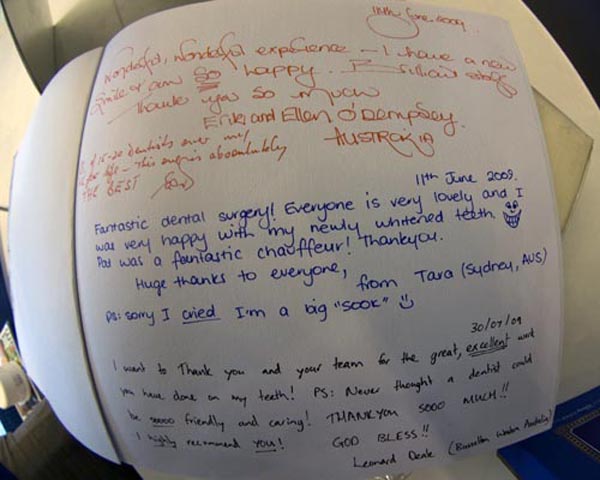 11th June 2009.
Wonderful, wonderful experience - I have a new
smile & am SO happy. Brilliant staff
Thank you so much
Erik and Ellen O'Dempsey.
AUSTRALIA
15-20 dentists over my
life - This one is absolutely
THE BEST
11th June 2009.
Fantastic dental surgery! Everyone is very lovely and I
was very happy with my newly whitened teeth
Pat was a fantastic chauffeur! Thankyou.
Huge thanks to everyone,
from Tara (Sydney, AUS)
PS: sorry I cried I'm a big "sook" :)
30/07/09
I want to Thank you and your team for the great, excellent work
you have done on my teeth! PS: Never thought a dentist could
be soooo friendly and caring! THANKYOU SOOO MUCH!!
I highly recommend YOU! GOD BLESS!!
Leonard Deale (Busselton Western Australia)